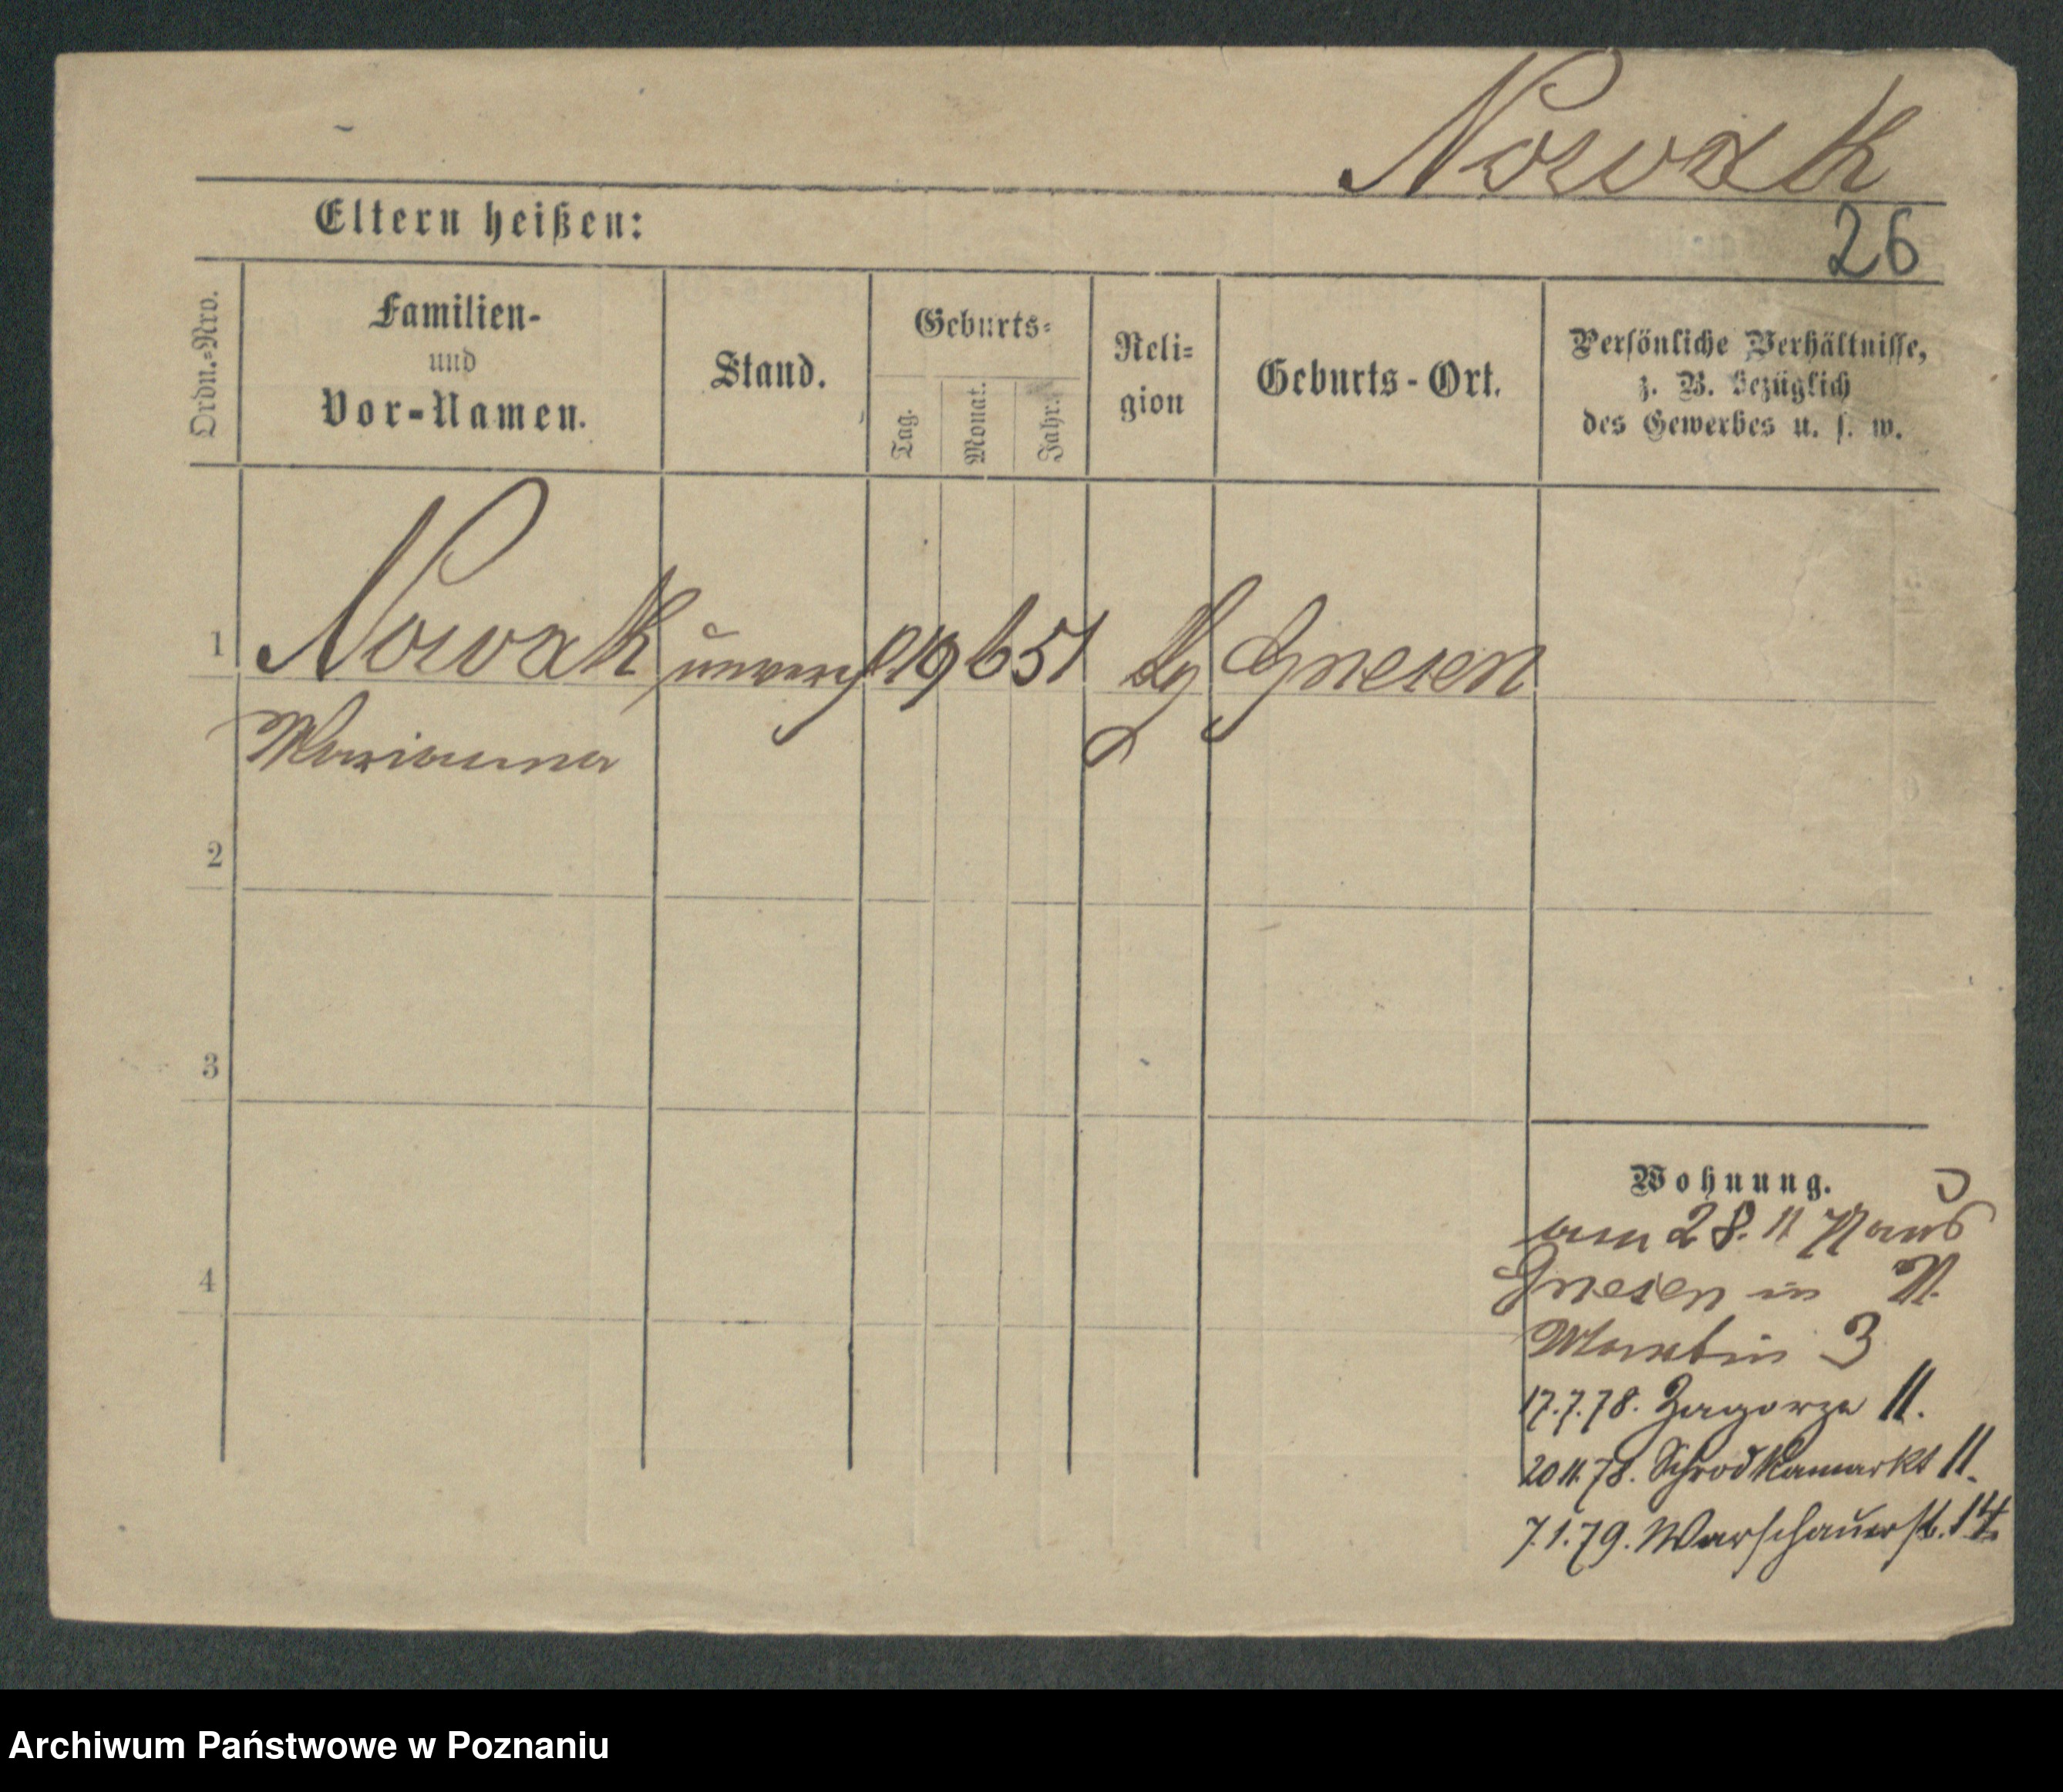 Nowak
Eltern heißen:
26
Ordn.=Nro.
Familien-
und
Vor-Namen.
Stand.
Geburts=
Tag.
Monat.
Jahr.
Reli=
gion
Geburts-Ort.
Persönliche Verhältnisse,
z. B. bezüglich
des Gewerbes u. s. w.
1
Nowak unverh 19 6 51 Gnesen
Marianna
2
3
4
Wohnung.
am 28. 11 aus
Gnesen in
Martin 3
17.7.78. Zagorze 11.
20 11. 78. Schrodkamarkt 11.
7.1.79. Warschauerst. 14.
Archiwum Państwowe w Poznaniu